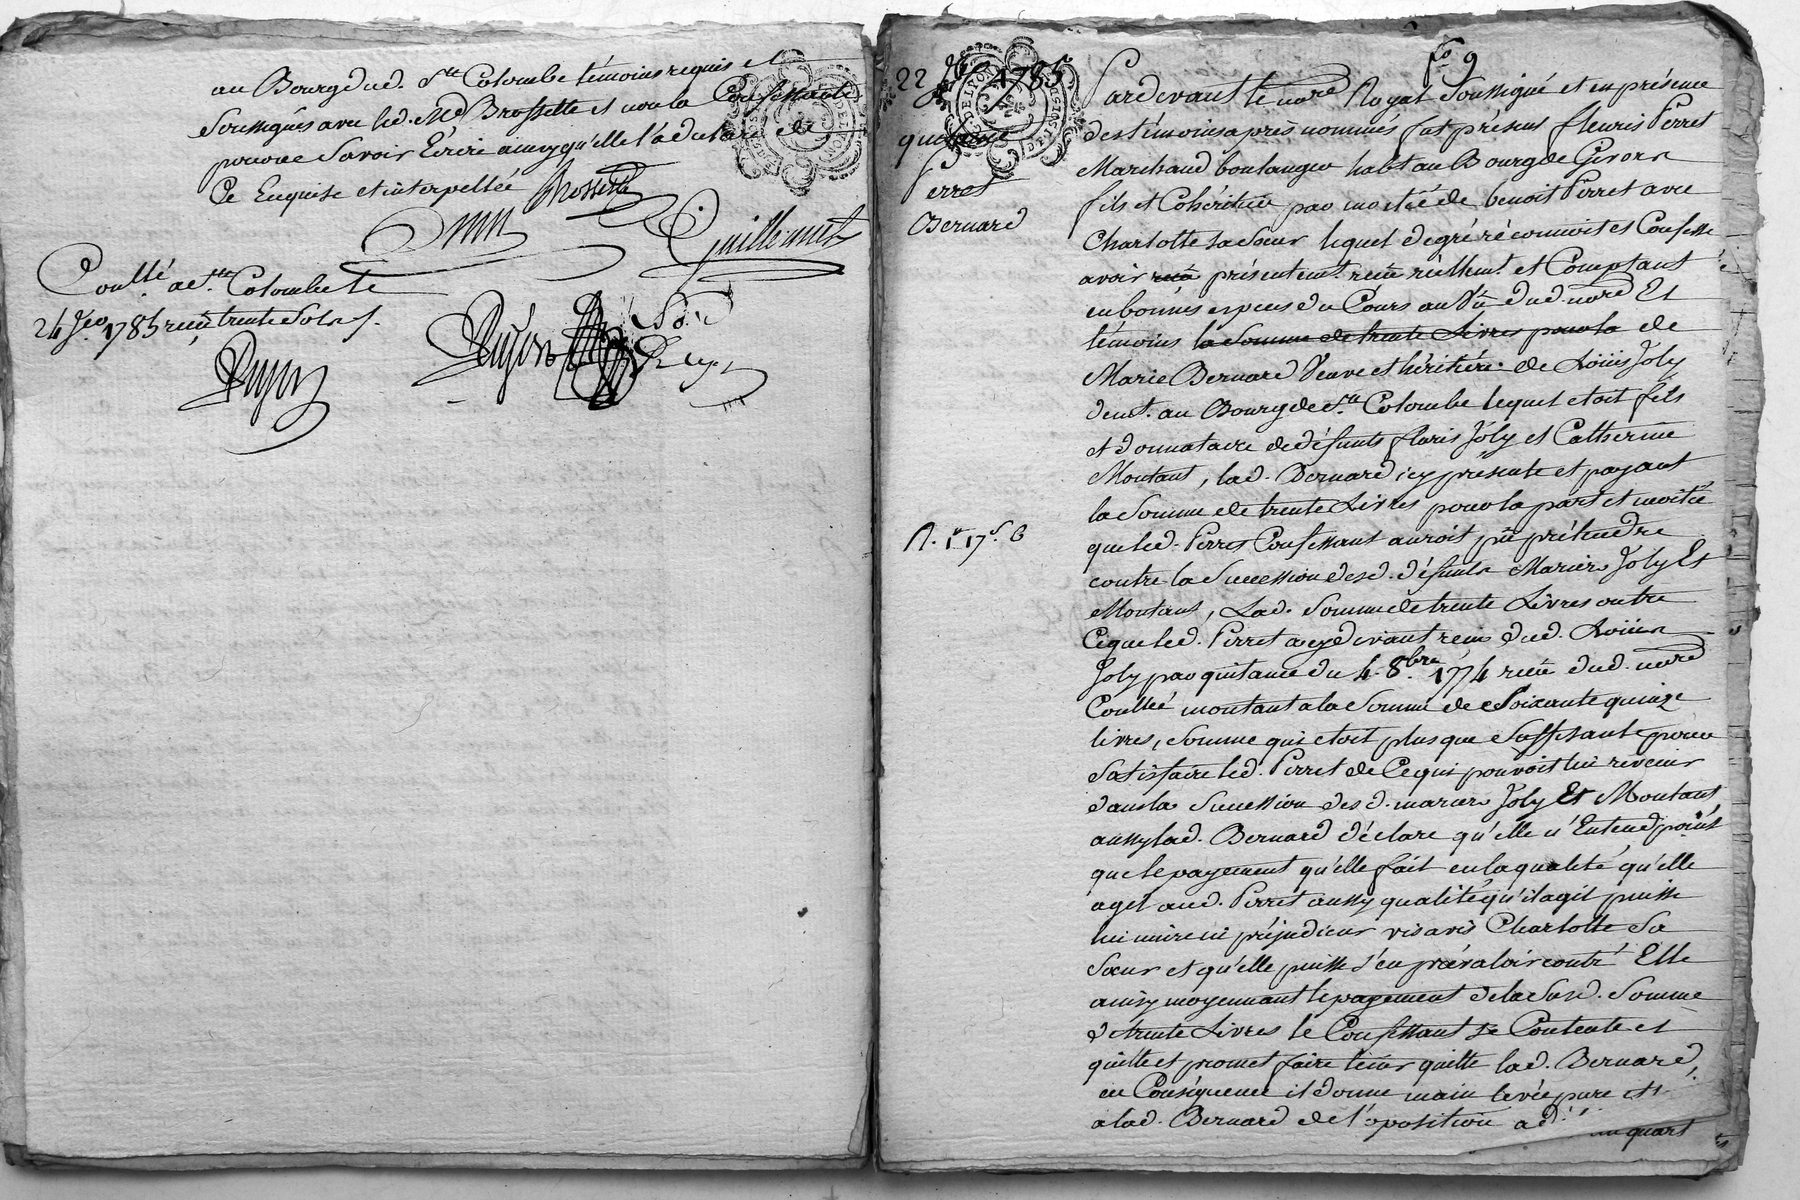 au Bourg dud. Ste Colombe témoins requis et
Soussignés avec led. Me Brossette et non la Confessante
pour ne Savoir Écrire ainsy qu'elle l'a declaré de
Ce Enquise et interpellée Brossette
Guillermet
Coullé a Ste Colombe le
24 1785 reçu trente Sols
Dujon
Dujon
22 1785
quittance
Perret
Bernard
R. 1# 17s 6
fo 9
Pardevant le nore Royal Soussigné et en présence
des témoins après nommés fut présent fleuris Perret
Marchand boulanger habt au Bourg de
fils et Cohéritier par moitié de benoit Perret avec
Charlotte sa Sœur lequel de gré réconnoit et Confesse
avoir reçu présentemt reçu réellemt et Comptant
en bonnes especes du Cours au Vû dud. nore Et
témoins la Somme de trente Livres pour la de
Marie Bernard Veuve et héritière de Loüis Joly
demt. au Bourg de Ste Colombe lequel etoit fils
et donnataire de défunts floris Joly et Catherine
Montant, lad. Bernard icy présente et payant
la Somme de trente Livres pour la part et moitié
que led. Perret Confessant auroit pû prétendre
contre la Succession desd. défunts Mariés Joly Et
Montant, Lad. Somme de trente Livres outre
Ce que led. Perret a cy devant reçu dud. Loüis
Joly par quitance du 4. 8bre 1774 reçu dud. nore
Coullé montant a la Somme de Soixante quinze
livres, Somme qui etoit plus que Suffisante pour
Satisfaire led. Perret de Ce qui pouvoit lui revenir
dans la Succession desd. mariés Joly Et Montant
aussy lad. Bernard déclare qu'elle n'Entend point
que le payement qu'elle fait en la qualité qu'elle
agit aud. Perret aussy qualité qu'il agit puisse
lui nuire ni préjudicier vis avis Charlotte Sa
Sœur et qu'elle puisse s'en prévaloir contre Elle
ainsy moyennant le payement de la Susd. Somme
de trente Livres le Confessant Se Contente et
quitte et promet faire tenir quitte lad. Bernard,
en Conséquence il donne main levée pure et
a lad. Bernard de l'oposition
un quart